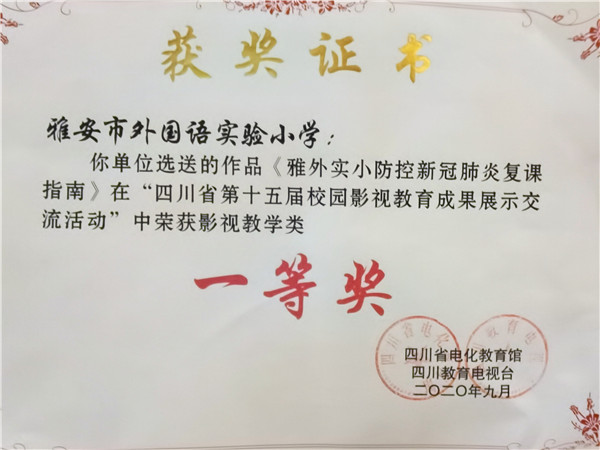 获奖证书
雅安市外国语实验小学：
你单位选送的作品《雅外实小防控新冠肺炎复课
指南》在“四川省第十五届校园影视教育成果展示交
流活动”中荣获影视教学类
一等奖
四川省电化教育馆
四川教育电视台
二〇二〇年九月